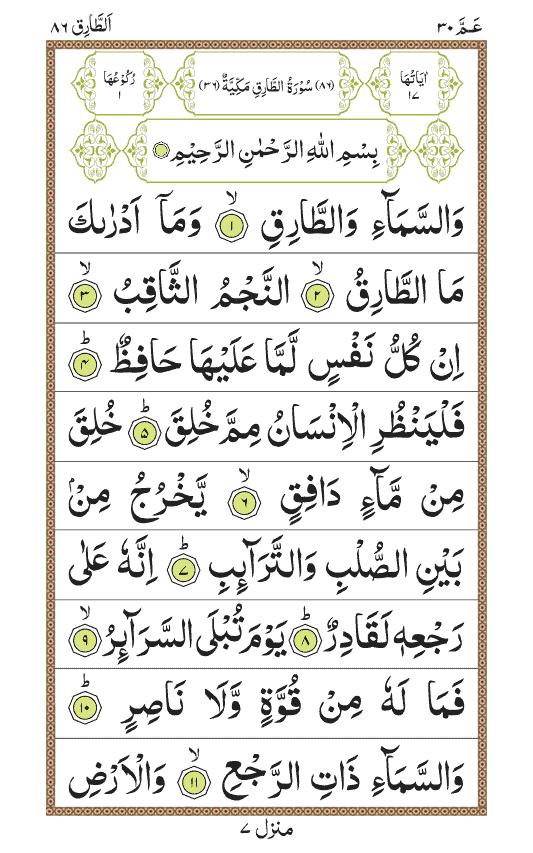 عَمَّ ٣٠
اَلطَّارِق ٨٦
اٰيَاتُهَا ١٧
(٨٦) سُوْرَةُ الطَّارِقِ مَكِّيَّةٌ (٣٦)
رُكُوْعُهَا ١
بِسْمِ اللّٰهِ الرَّحْمٰنِ الرَّحِيْمِ
وَالسَّمَآءِ وَالطَّارِقِ ۙ ١ وَمَآ اَدْرٰىكَ
مَا الطَّارِقُ ۙ ٢ النَّجْمُ الثَّاقِبُ ۙ ٣
اِنْ كُلُّ نَفْسٍ لَّمَّا عَلَيْهَا حَافِظٌ ؕ ٤
فَلْيَنْظُرِ الْاِنْسَانُ مِمَّ خُلِقَ ؕ ٥ خُلِقَ
مِنْ مَّآءٍ دَافِقٍ ۙ ٦ يَّخْرُجُ مِنْۢ
بَيْنِ الصُّلْبِ وَالتَّرَآئِبِ ؕ ٧ اِنَّهٗ عَلٰى
رَجْعِهٖ لَقَادِرٌ ؕ ٨ يَوْمَ تُبْلَى السَّرَآئِرُ ۙ ٩
فَمَا لَهٗ مِنْ قُوَّةٍ وَّلَا نَاصِرٍ ؕ ١٠
وَالسَّمَآءِ ذَاتِ الرَّجْعِ ۙ ١١ وَالْاَرْضِ
منزل ٧